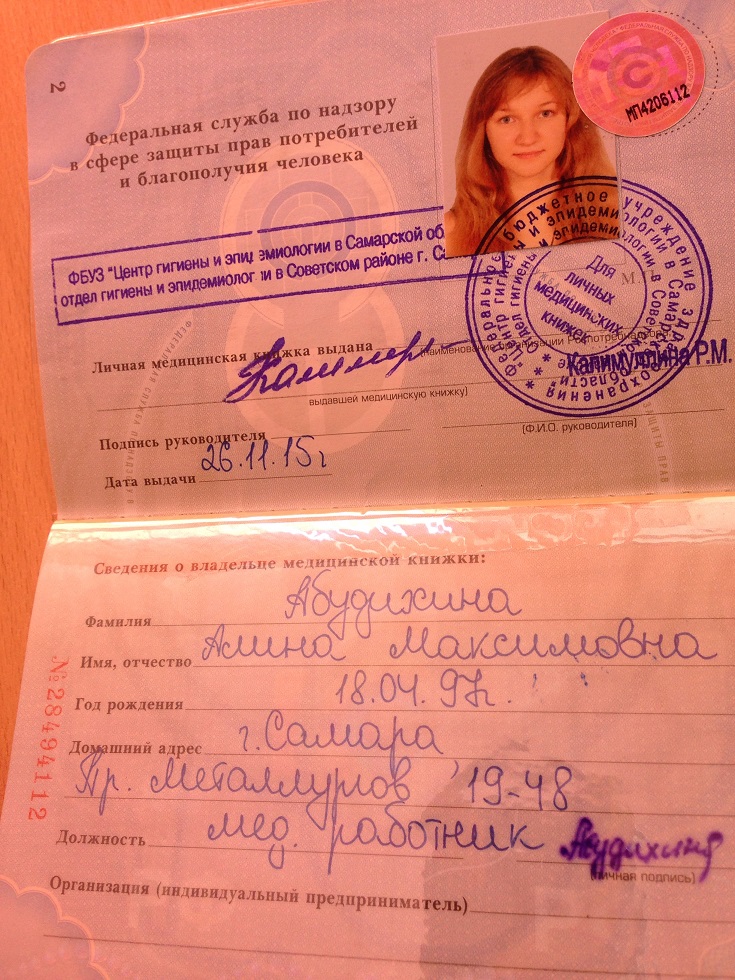 2
Федеральная служба по надзору
в сфере защиты прав потребителей
и благополучия человека
МП4206112
ФБУЗ "Центр гигиены и эпидемиологии в Самарской об
отдел гигиены и эпидемиологии в Советском районе г. Са
Для
личных
медицинских
книжек
М.
Личная медицинская книжка выдана
(наименование организации Роспотребнадзора,
Калимуллина Р.М.
выдавшей медицинскую книжку)
Подпись руководителя
(Ф.И.О. руководителя)
Дата выдачи 26.11.15г
Сведения о владельце медицинской книжки:
Фамилия Абудихина
Имя, отчество Алина Максимовна
Год рождения 18.04.97г.
Домашний адрес г. Самара
Пр. Металлургов 19-48
Должность мед. работник Абудихина
(личная подпись)
Организация (индивидуальный предприниматель)
№28494112